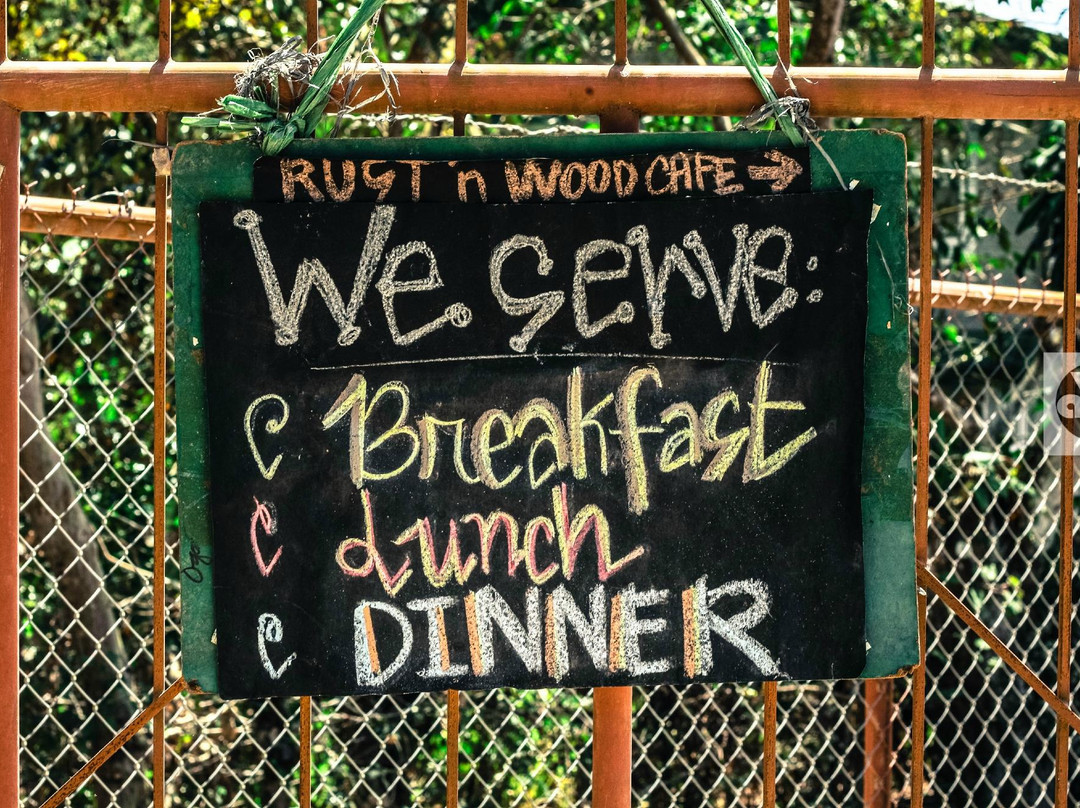 RUST n WOOD CAFE →
We serve:
Breakfast
Lunch
DINNER